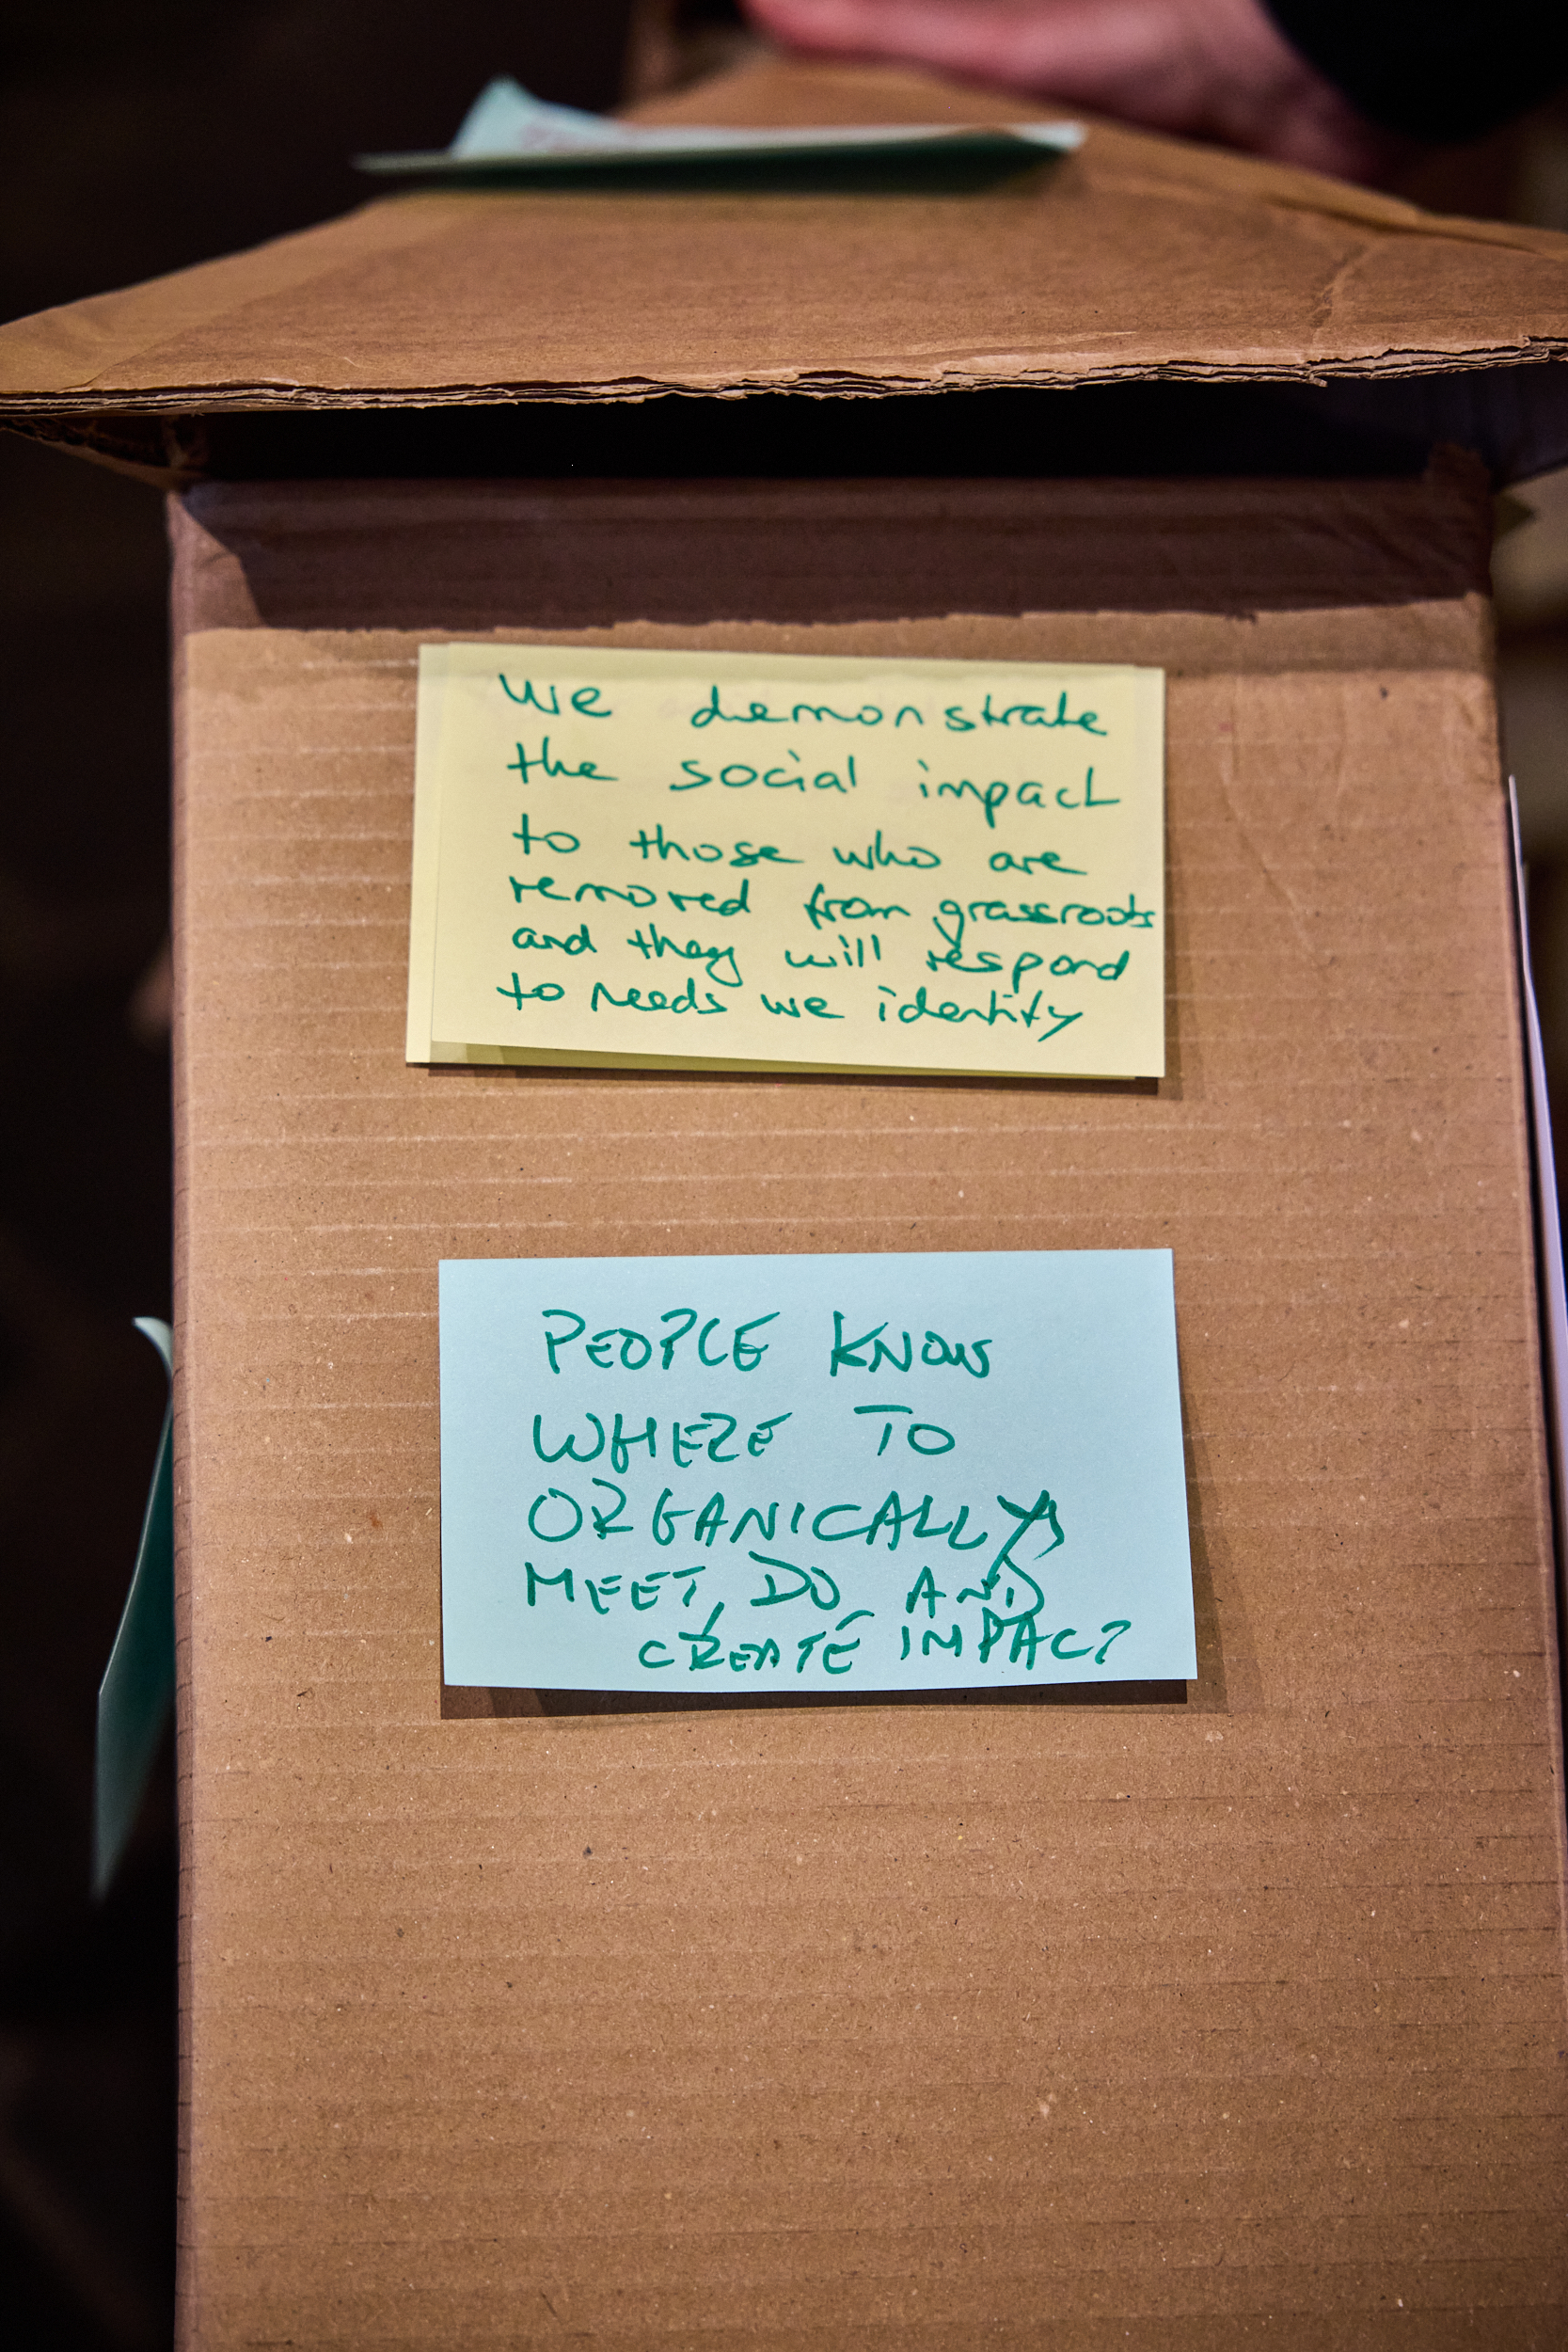 we demonstrate
the social impact
to those who are
removed from grassroots
and they will respond
to needs we identity
PEOPLE KNOW
WHERE TO
ORGANICALLY
MEET, DO, AND
CREATE IMPACT